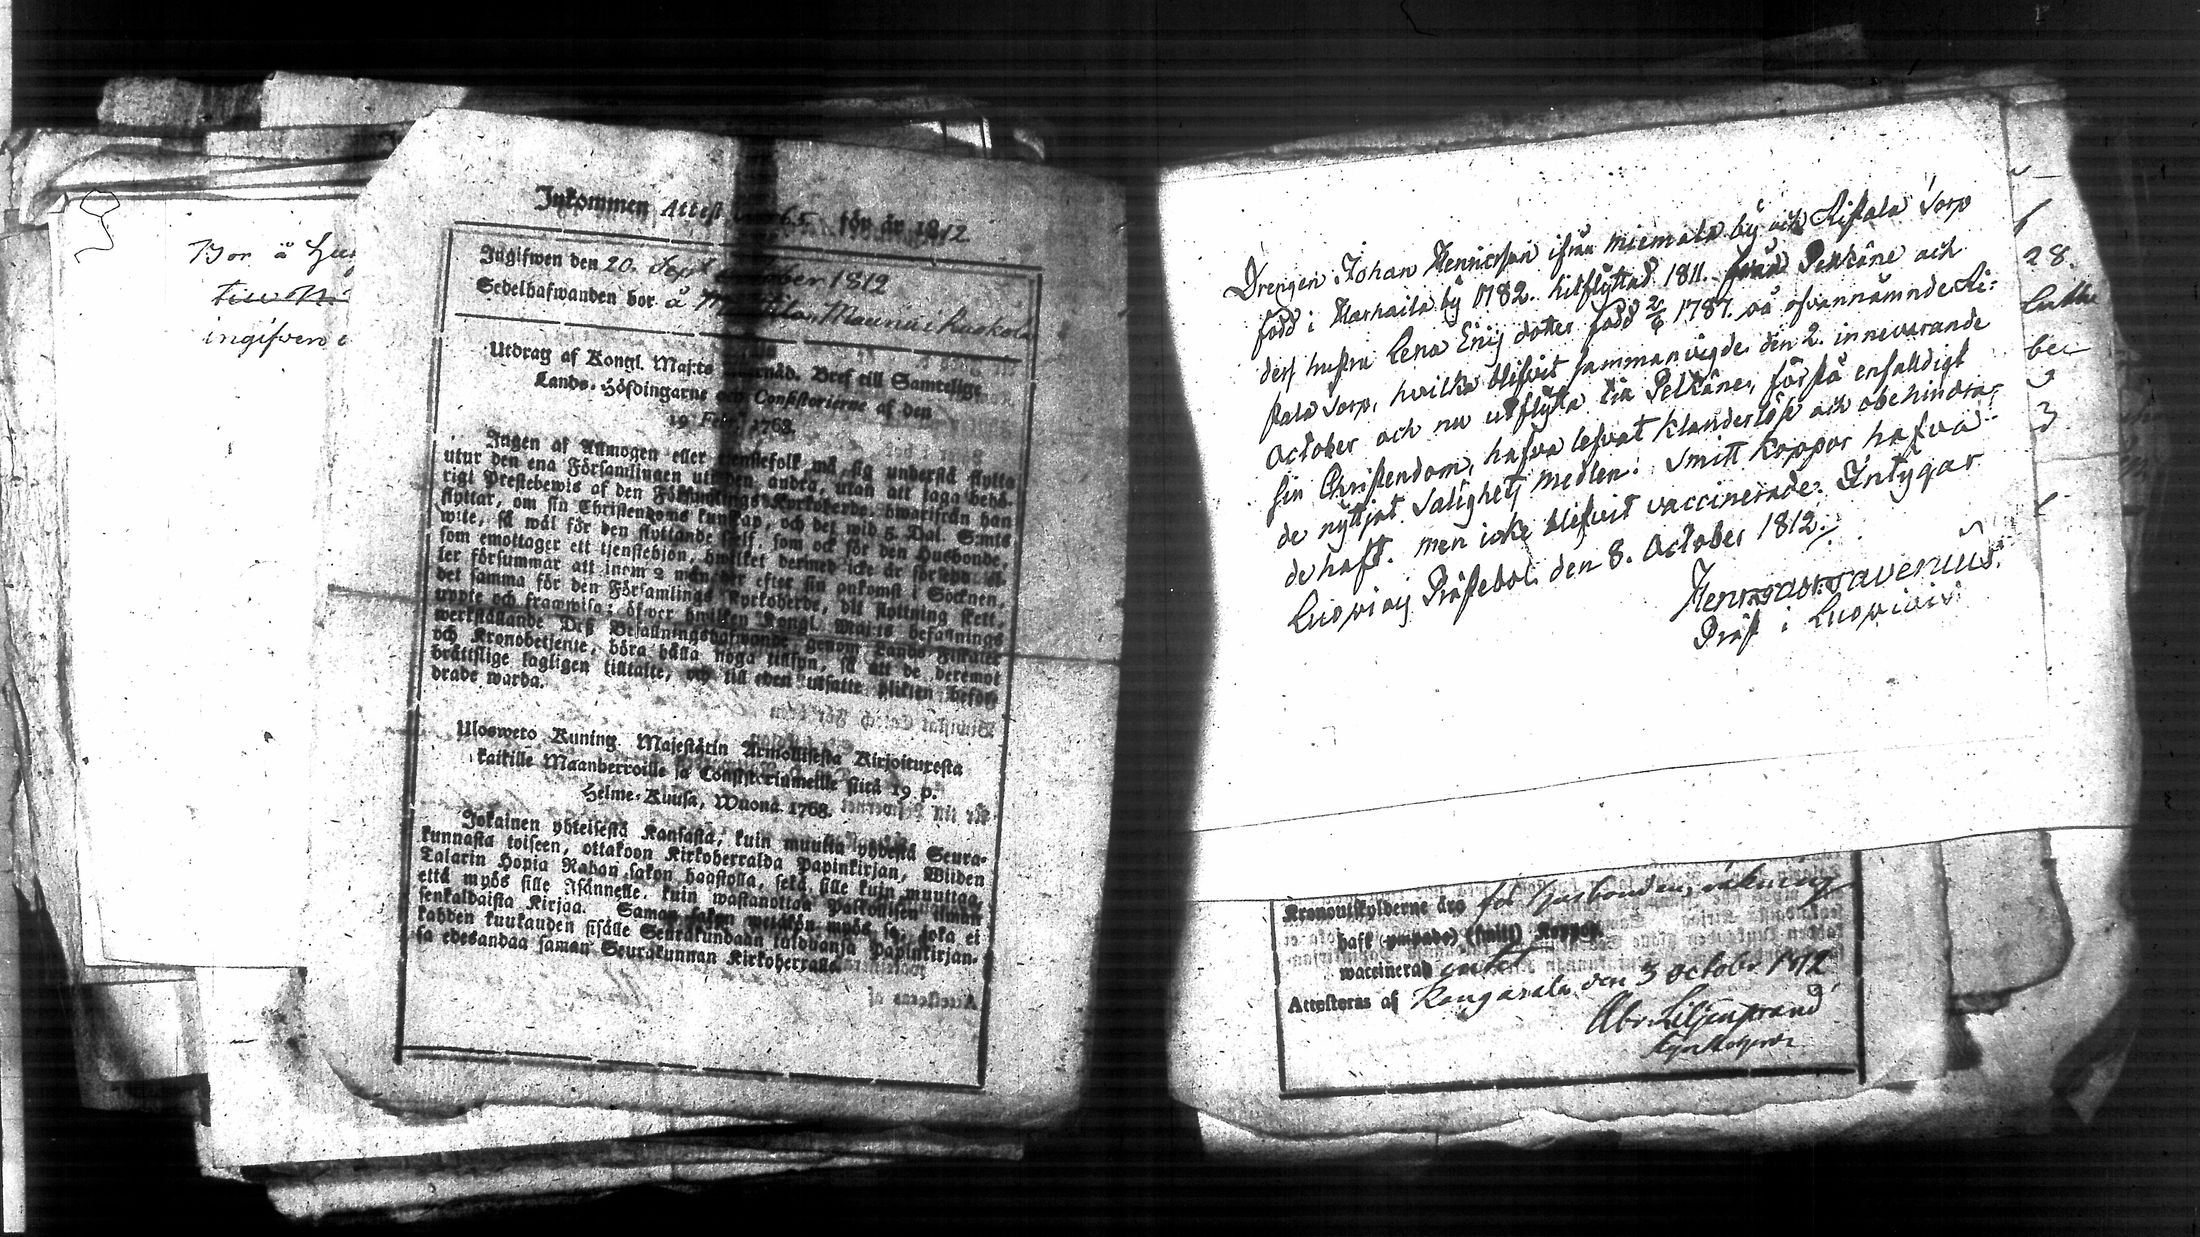 Bor å
ingifven
Inkommen Attest 65 för år 1812
Ingifwen den 20. Sept october 1812
Sedelhafwanden bor å Mattila,
Utdrag af Kongl. Maj:ts Bref till Samtelige
Lands-Höfdingarne och Consistorierne af den
19 Febr. 1768.
Ingen af Allmogen eller tjenstefolk må sig understå flytta
utur den ena Församlingen uti den andra, utan att taga behö-
rigt Prestebewis af den Församlings Kyrkoherde, hwarifrån han
flyttar, om sin Christendoms kunskap, och det wid 5 Dal. S:mts
wite, så wäl för den flyttande sjelf, som ock för den Husbonde,
som emottager ett tjenstehjon, hwilket dermed icke är försedd el-
ler försummar att inom 2 månader efter sin ankomst i Socknen,
det samma för den Församlings Kyrkoherde, dit flyttning skett,
uppte och framwisa; öfwer hwilken Kongl. Maj:ts befallnings
werkställande Dess Befallningshafwande genom Lands-Fiskaler
och Kronobetjente, böra hålla noga tillsyn, så att de deremot
brättslige lagligen tilltalte, och till den utsatte plikten beford-
rade warda.
Ulosweto Kuning. Majestätin Armollisesta Kirjoituxesta
kaikille Maanherroille ja Consistoriumeille siitä 19 p.
Helme-Kuusa, Wuonna 1768.
Jokainen yhteisestä Kansasta, kuin muutta yhdestä Seura-
kunnasta toiseen, ottakoon Kirkoherralda Papinkirjan, Wiiden
Talarin Hopia Rahan sakon haastolla, sekä sille kuin muuttaa,
että myös sille Isännelle, kuin wastanottaa Palkollisen ilman
senkaldaista Kirjaa. Saman sakon wetäkön myös se, joka ei
kahden kuukauden sisälle Seurakundaan tulduansa Papinkirjan-
sa edesandaa saman Seurakunnan Kirkoherralle.
Drengen Johan Henricsson ifrån Miemala by och Ristala Torp
född i Harhaila by 1782. hitflyttad 1811. från Pelkäne och
dess hustru Lena Erics dotter född 2/6 1787. på ofvannämnde Ri-
stala Torp, hvilka blifvit sammanvigde den 2. innevarande
October och nu utflytta till Pelkäne, förstå enfalldigt
sin Christendom, hafva lefvat klanderlöst och obehindra-
de nyttjat Salighets medlen. Smitt koppor hafva
de haft. men icke blifvit vaccinerade. Intygar
Luopiois Prästebol den 8. October 1812.
Präst i Luopiois
28.
Kronoutskylderne äro för husbondens räkning
haft (ympade) (smitt) Koppor
waccinerad
Attesteras af Kangasala den 3 October 1812
Abr. Liljenstrand